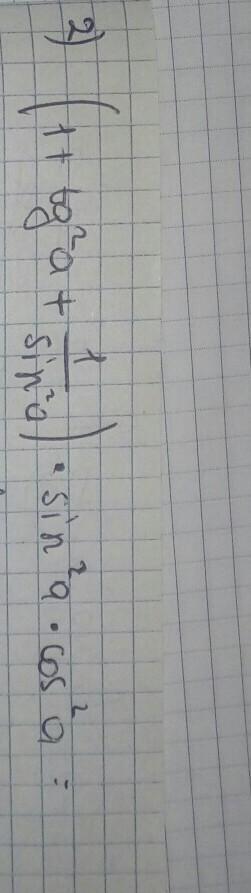 2) (1 + tg²a + 1/sin²a) · sin²a · cos²a =